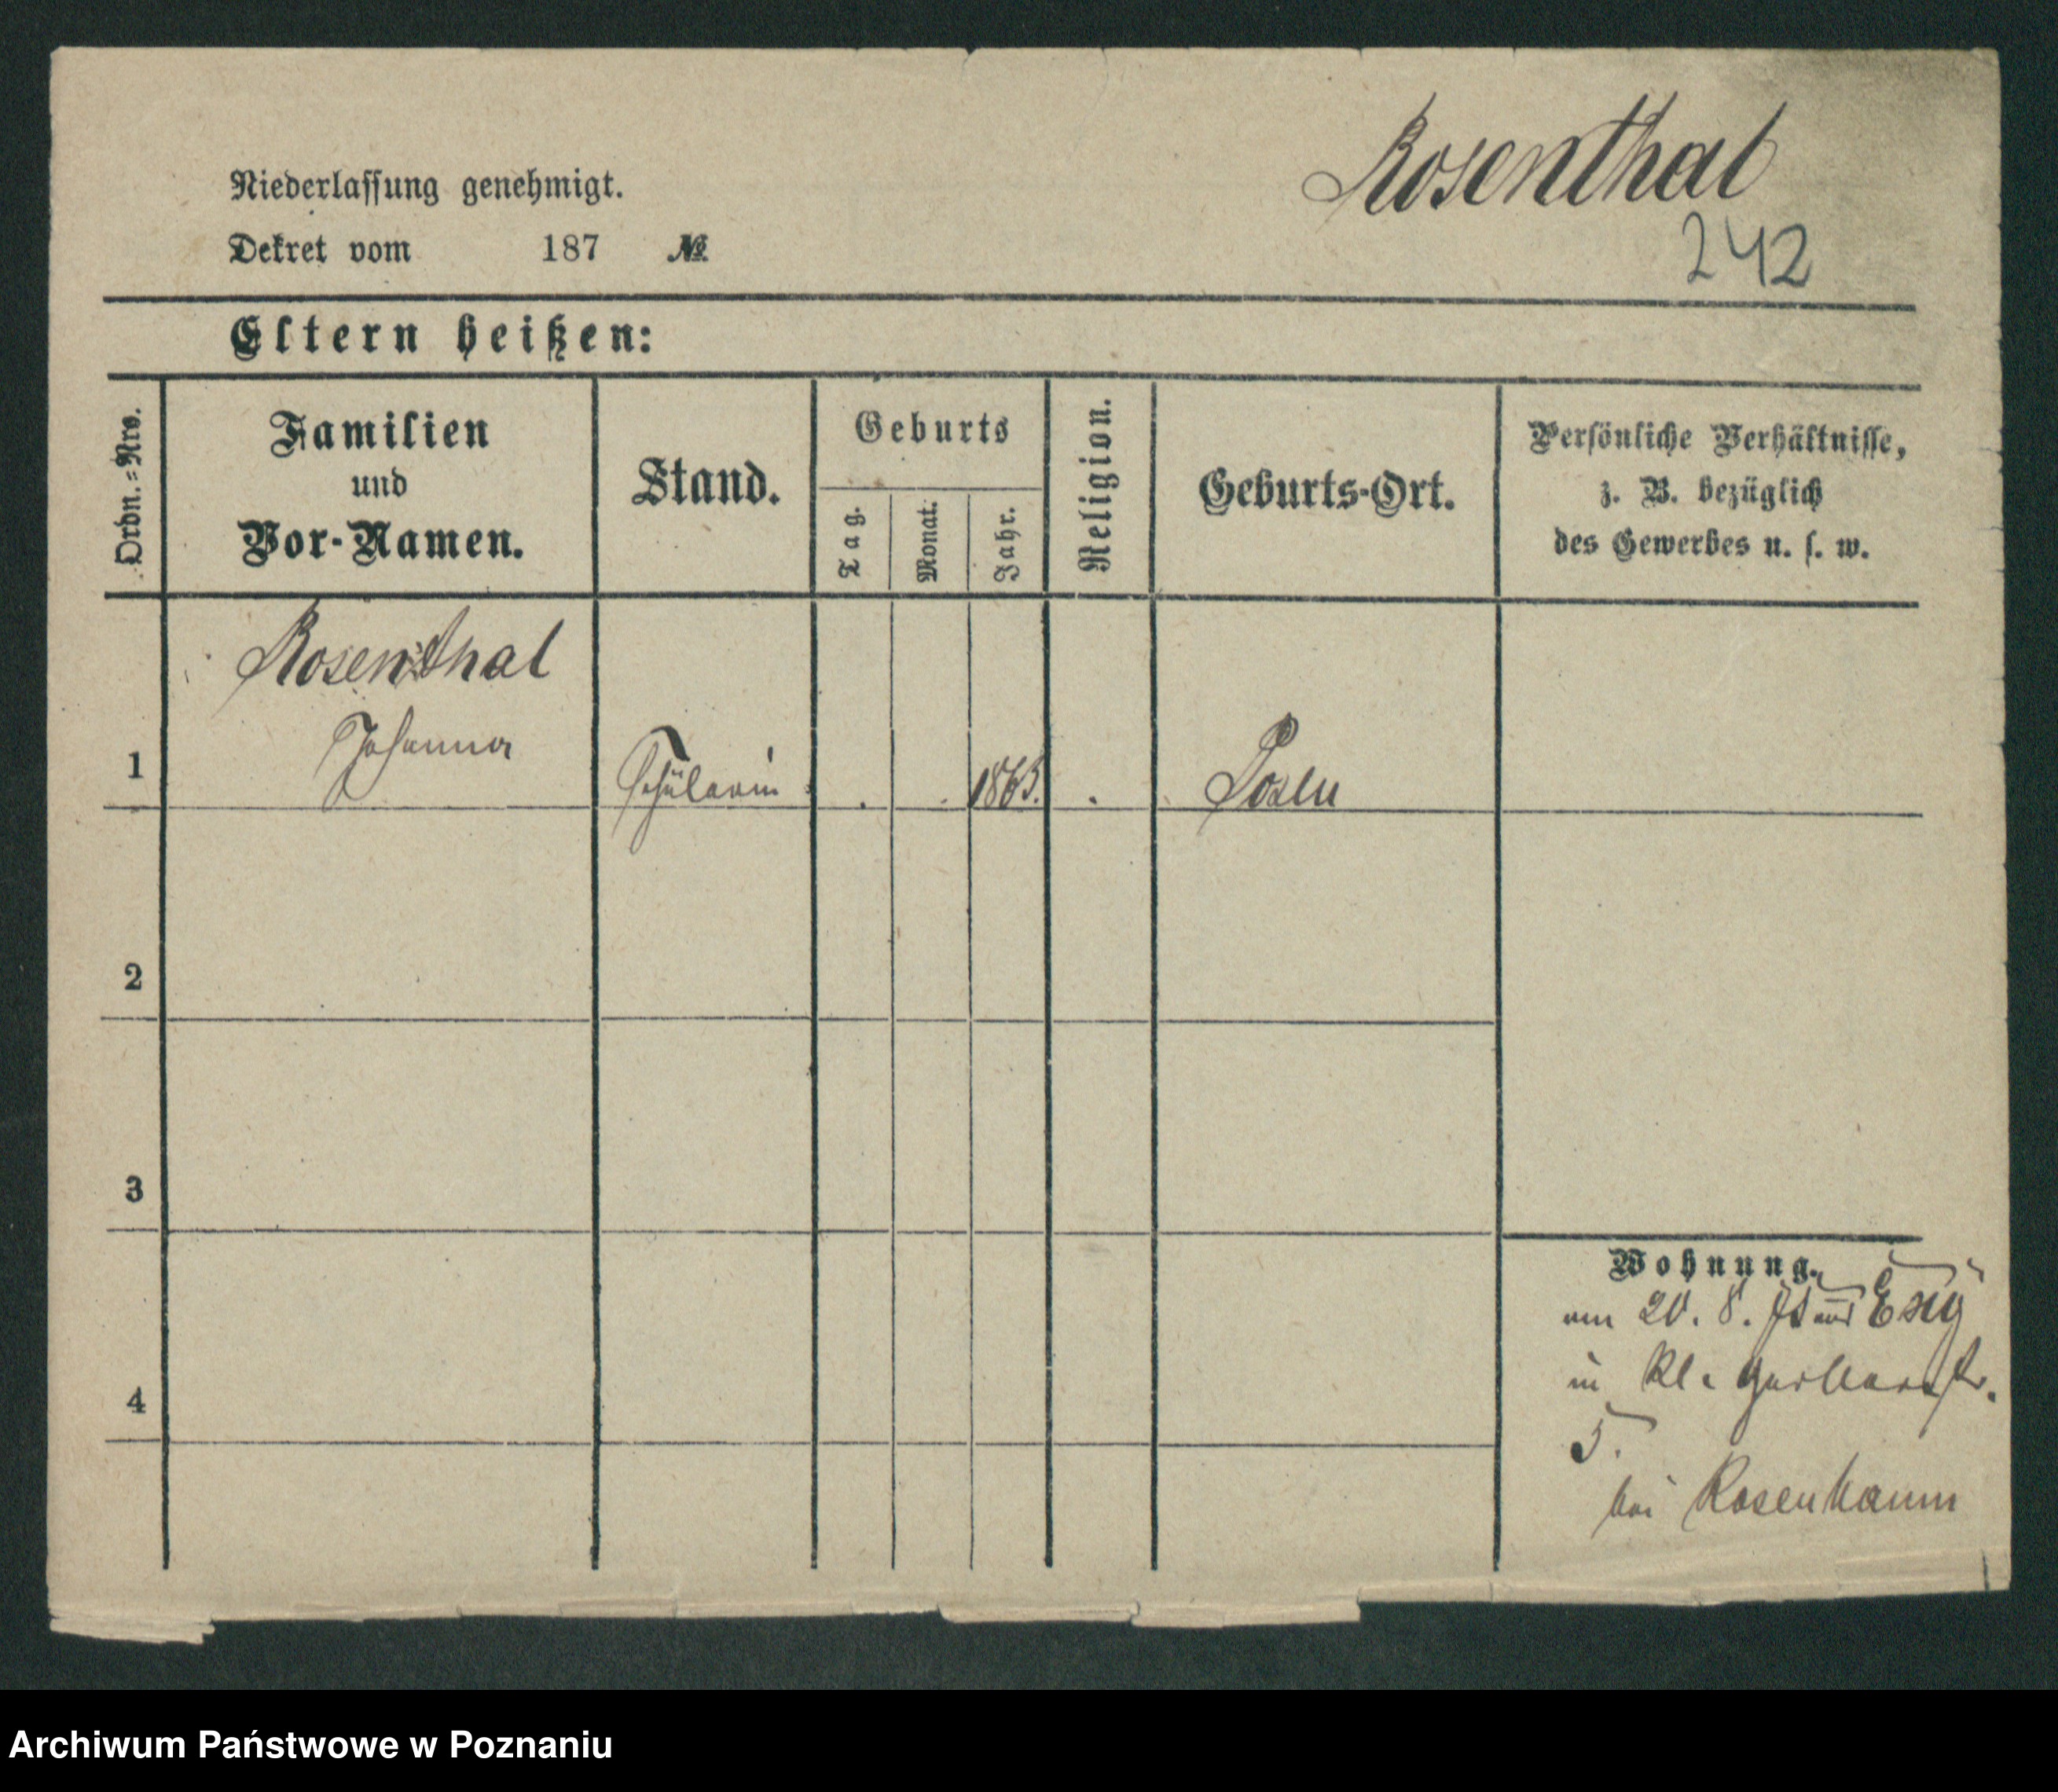 Rosenthal
242
Niederlassung genehmigt.
Dekret vom 187 №
Eltern heißen:
Ordn.=Nro.
Familien
und
Vor-Namen.
Stand.
Geburts
Tag.
Monat.
Jahr.
Religion.
Geburts-Ort.
Persönliche Verhältnisse,
z. B. bezüglich
des Gewerbes u. s. w.
Rosenthal
Johanna
1 Schülerin 1865. Posen
2
3
4
Wohnung.
am 20. 8.
in Kl. Gerberstr.
5.
bei Rosenbaum
Archiwum Państwowe w Poznaniu